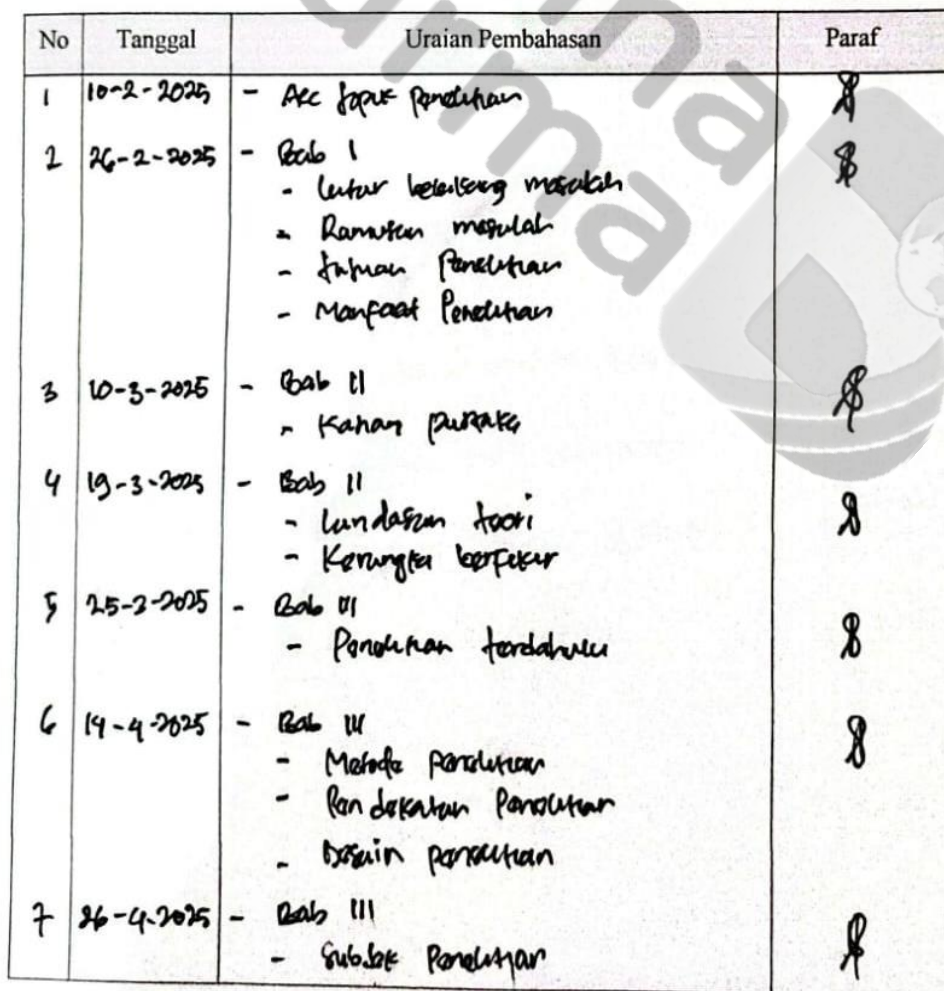 No Tanggal Uraian Pembahasan Paraf
1 10-2-2025 - Acc Topik Penelitian
2 26-2-2025 - Bab I
- Latar belakang masalah
- Rumusan masalah
- Tujuan Penelitian
- Manfaat Penelitian
3 10-3-2025 - Bab II
- Kajian pustaka
4 19-3-2025 - Bab II
- Landasan teori
- Kerangka berfikir
5 25-3-2025 - Bab III
- Penelitian terdahulu
6 14-4-2025 - Bab III
- Metode penelitian
- Pendekatan Penelitian
- Desain penelitian
7 26-4-2025 - Bab III
- Subjek Penelitian